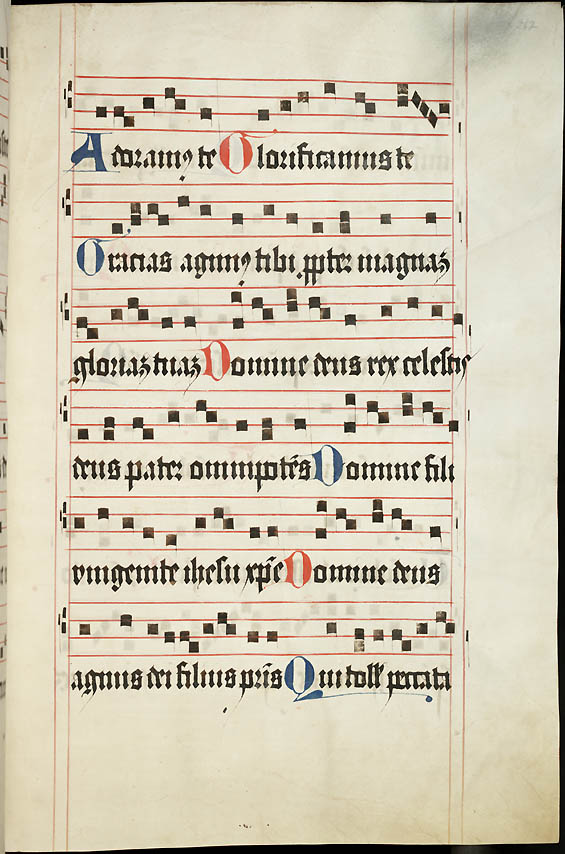 Adoramꝰ te Glorificamus te
Gracias agimꝰ tibi ꝓpter magnaʒ
gloriaʒ tuaʒ Domine deus rex celestis
deus pater omnipotēs Domine fili
vnigenite ihesu xp̄e Domine deus
agnus dei filius pr̄is Qui toll' peccata